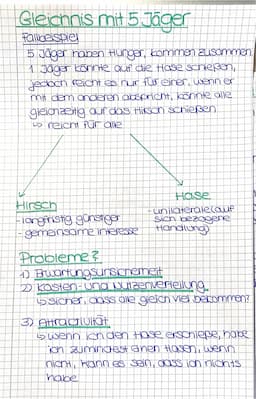 Gleichnis mit 5 Jäger
Fallbeispiel
5 Jäger haben Hunger, kommen zusammen
1 Jäger könnte auf die Hase schießen,
jedoch reicht es nur für einer, wenn er
mit dem anderen abspricht, könnte alle
gleichzeitig auf das Hirsch schießen
↳ reicht für alle
Hirsch
- langfristig günstiger
- gemeinsame Interesse
Hase
- unilaterale (auf
sich bezogene
Handlung)
Probleme?
1) Erwartungsunsicherheit
2) Kosten- und Nutzenverteilung
↳ sicher, dass alle gleich viel bekommen?
3) Attractivität
↳ wenn ich den Hase erschieße, habe
ich zumindest einen Hasen, wenn
nicht, kann es sein, dass ich nichts
habe